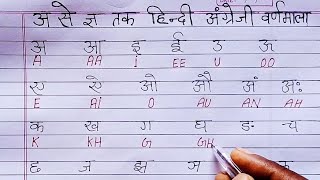 अ से ज्ञ तक हिन्दी अंग्रेजी वर्णमाला
अ आ इ ई उ ऊ
A AA i EE U OO
ए ऐ ओ औ अं अः
E Ai O AU AN AH
क ख ग घ ङ च
K KH G GH
छ ज झ ञ